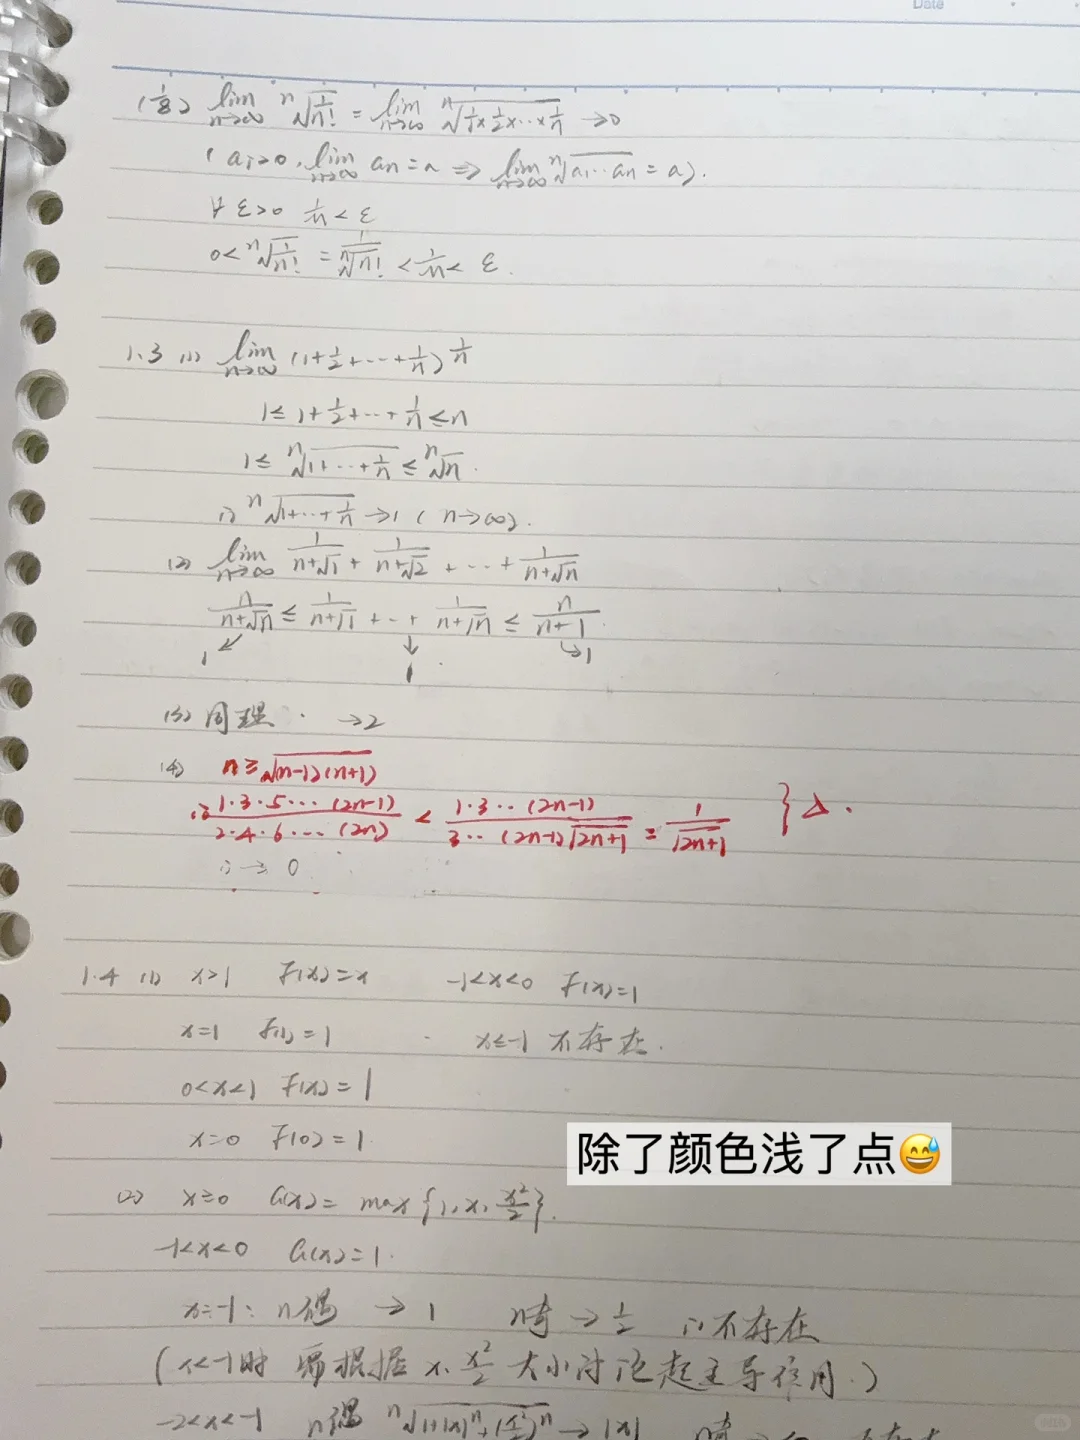 Date
(18) lim_{n→∞} ⁿ√(1/n!) = lim_{n→∞} ⁿ√(1/1 × 1/2 × ··· × 1/n) → 0
(a_i>0, lim_{n→∞} a_n = a ⇒ lim_{n→∞} ⁿ√(a_1···a_n) = a).
∀ε>0 1/n < ε
0 < ⁿ√(1/n!) = 1/ⁿ√(n!) < 1/n < ε.
1.3 (1) lim_{n→∞} (1+1/2+···+1/n)^{1/n}
1 ≤ 1+1/2+···+1/n ≤ n
1 ≤ ⁿ√(1+···+1/n) ≤ ⁿ√n.
∴ ⁿ√(1+···+1/n) → 1 (n→∞).
(2) lim_{n→∞} 1/(n+√1) + 1/(n+√2) + ··· + 1/(n+√n)
n/(n+√n) ≤ 1/(n+√1) + ··+ 1/(n+√n) ≤ n/(n+1).
1 1 1
(3) 同理. → 2
(4) n ≥ √((n-1)(n+1))
∴ 1·3·5···(2n-1)/2·4·6···(2n) < 1·3··(2n-1)/3··(2n-1)√(2n+1) = 1/√(2n+1) } △.
∴ → 0
1.4 (1) x>1 F(x)=x -1<x<0 F(x)=1
x=1 F(1)=1 x≤-1 不存在.
0<x<1 F(x)=1
x=0 F(0)=1
除了颜色浅了点😅
(2) x≥0 G(x)= max{1, x, x²/2}.
-1<x<0 G(x)=1.
x=-1: n偶 → 1 n奇 → 1/2 ∴不存在
(x<-1时 需根据 x, x²/2 大小讨论起主导作用.)
-2<x<-1 n偶 ⁿ√(1+|x|ⁿ+(x²/2)ⁿ) → |x|